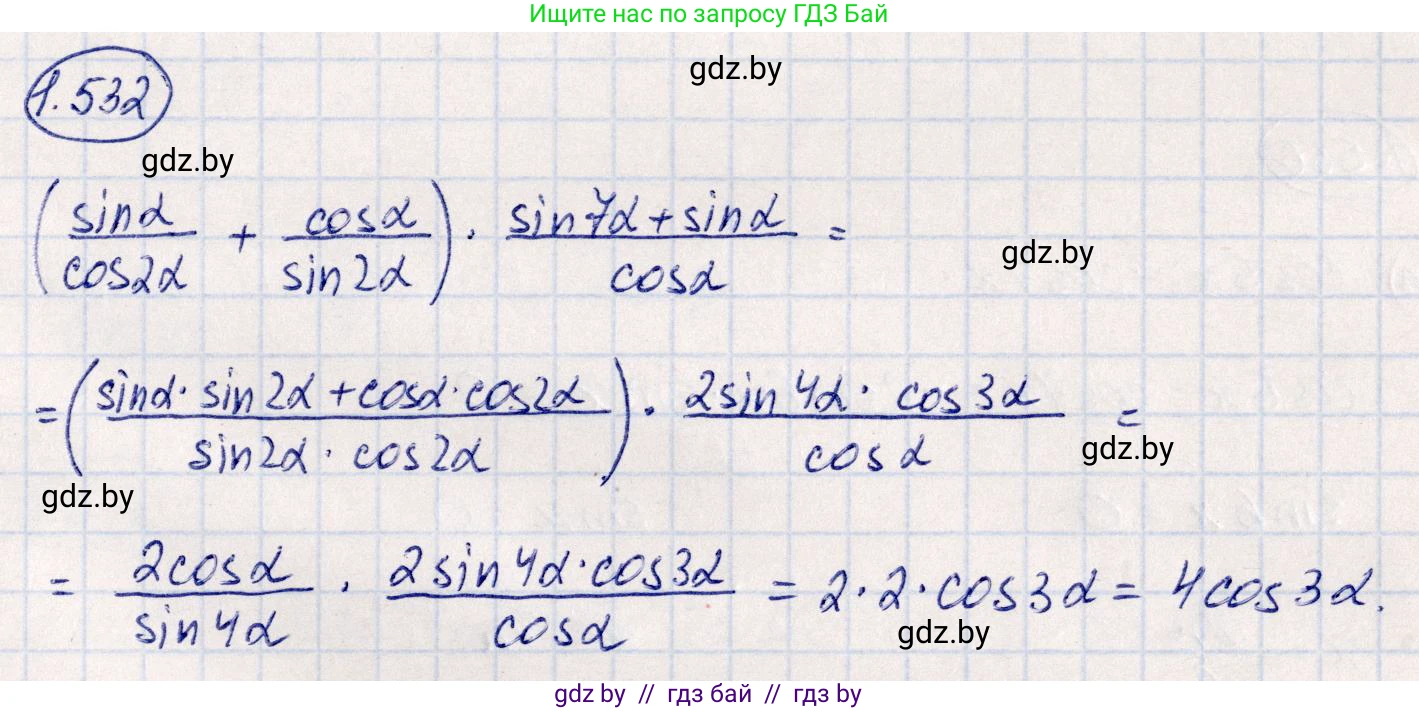 Ищите нас по запросу ГДЗ Бай
gdz.by
1.532
gdz.by
(sinα/cos2α + cosα/sin2α) · (sin7α + sinα)/cosα =
gdz.by
= ((sinα · sin2α + cosα · cos2α)/(sin2α · cos2α)) · (2sin4α · cos3α)/cosα =
gdz.by
gdz.by
= 2cosα/sin4α · (2sin4α · cos3α)/cosα = 2 · 2 · cos3α = 4cos3α.
gdz.by
gdz by // гдз бай // гдз by